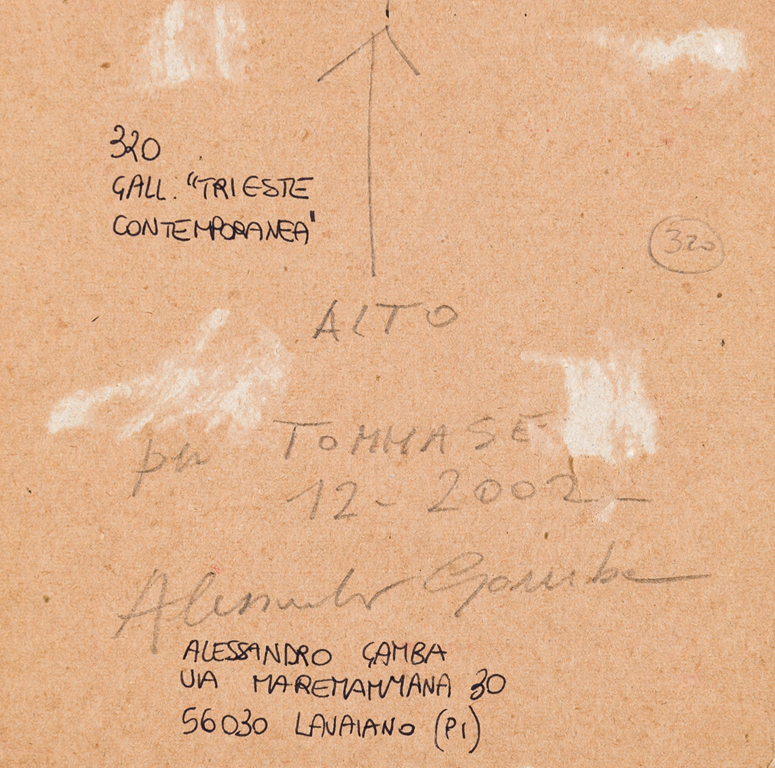 320
GALL. "TRIESTE
CONTEMPORANEA"
320
ALTO
per TOMMASE
12-2002-
Alessandro Gamba
ALESSANDRO GAMBA
VIA MAREMAMMANA 30
56030 LAVAIANO (PI)